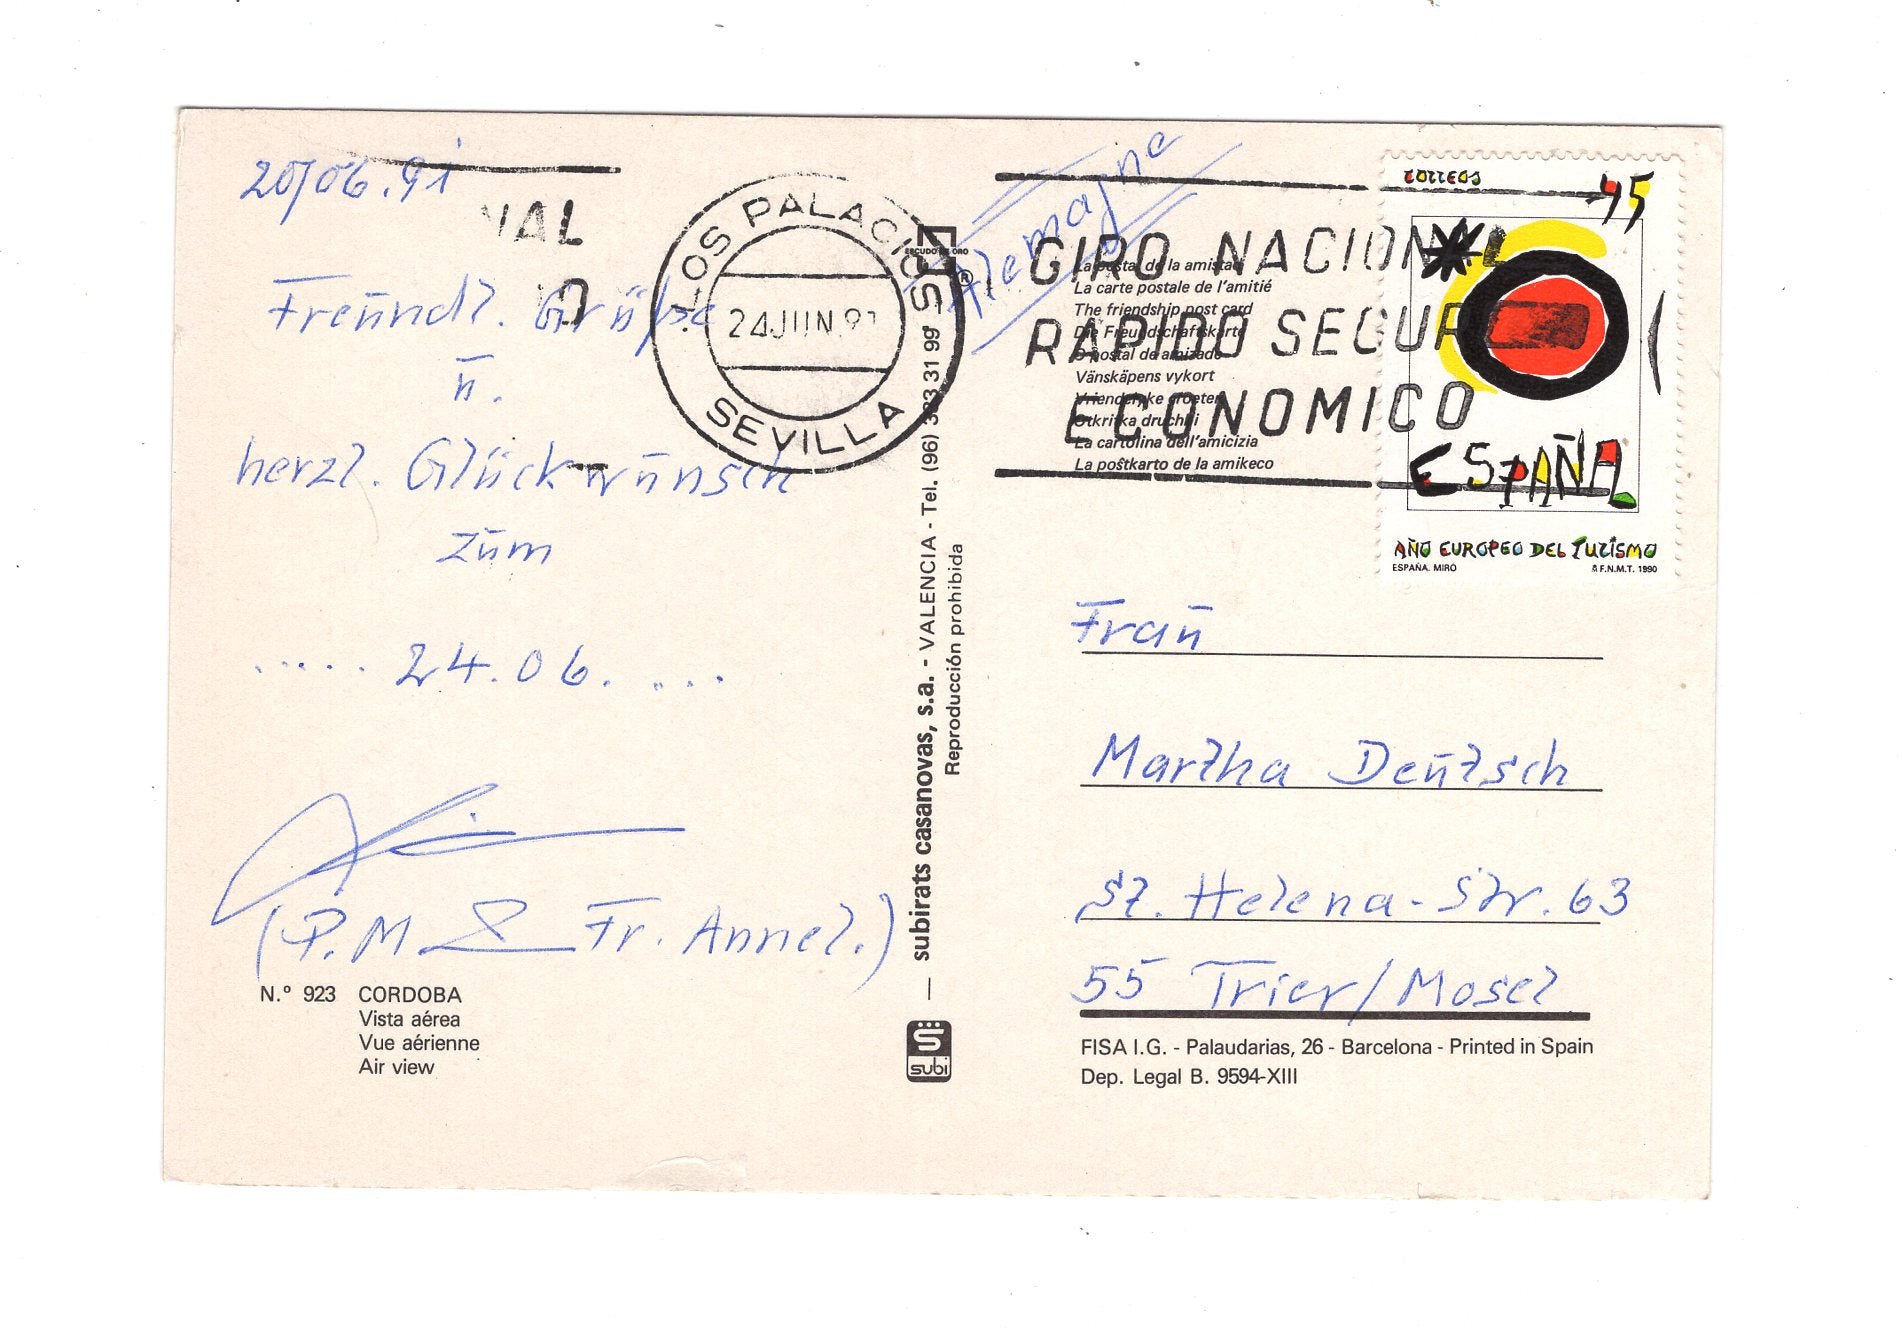 20/06.91
Freundl. Grüße
u.
herzl. Glückwunsch
zum
..... 24.06. ....
(P.M & Fr. Annel.)
N.º 923 CORDOBA
Vista aérea
Vue aérienne
Air view
NAL
LOS PALACIOS
24 JUN 91
SEVILLA
subirats casanovas, s.a. - VALENCIA - Tel. (96) 333 31 99
Reproducción prohibida
ESCUDO DE ORO
®
subi
Alemagne
GIRO NACIONAL
RAPIDO SEGURO
ECONOMICO
La postal de la amistad
La carte postale de l'amitié
The friendship post card
Die Freundschaftskarte
O postal de amizade
Vänskäpens vykort
Vriendelyke groeten
Otkritka druchbi
La cartolina dell'amicizia
La poŝtkarto de la amikeco
CORREOS 45
ESPAÑA
AÑO EUROPEO DEL TURISMO
ESPAÑA. MIRÓ F.N.M.T. 1990
Frau
Martha Deutsch
St. Helena-Str. 63
55 Trier/Mosel
FISA I.G. - Palaudarias, 26 - Barcelona - Printed in Spain
Dep. Legal B. 9594-XIII